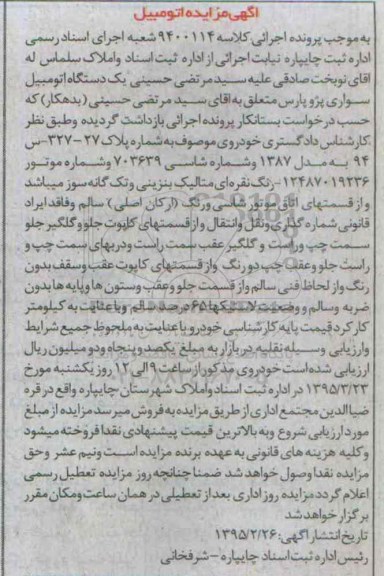 آگهی مزایده اتومبیل
به موجب پرونده اجرائی کلاسه ۹۴۰۰۱۱۴ شعبه اجرای اسناد رسمی
اداره ثبت چایپاره نیابت اجرائی از اداره ثبت اسناد واملاک سلماس له
آقای نوبخت صادقی علیه سید مرتضی حسینی یک دستگاه اتومبیل
سواری پژو پارس متعلق به آقای سید مرتضی حسینی (بدهکار) که
حسب درخواست بستانکار پرونده اجرائی بازداشت گردیده وطبق نظر
کارشناس دادگستری خودروی موصوف به شماره پلاک ۲۷-۳۲۷-س
۹۴ به مدل ۱۳۸۷ وشماره شاسی ۷۰۳۶۳۹ وشماره موتور
۱۲۴۸۷۰۱۹۲۳۶-رنگ نقره ای متالیک بنزینی وتک گانه سوز میباشد
واز قسمتهای اتاق موتور شاسی ورنگ (ارکان اصلی) سالم وفاقد ایراد
قانونی شماره گذاری ونقل وانتقال واز قسمتهای کاپوت جلو وگلگیر جلو
سمت چپ وراست و گلگیر عقب سمت راست ودربهای سمت چپ و
راست جلو وعقب چپ دو رنگ واز قسمتهای کاپوت عقب وسقف بدون
رنگ واز لحاظ فنی سالم واز قسمت جلو وعقب وستون ها وپایه ها بدون
ضربه وسالم ووضعیت لاستیکها ۶۵ درصد سالم وبا عنایت به کیلومتر
کارکرد قیمت پایه کارشناسی خودرو باعنایت به ملحوظ جمیع شرایط
وارزیابی وسیله نقلیه در بازار به مبلغ یکصد وپنجاه ودو میلیون ریال
ارزیابی شده است خودروی مذکور از ساعت ۹ الی ۱۲ روز یکشنبه مورخ
۱۳۹۵/۳/۲۳ در اداره ثبت اسناد واملاک شهرستان چایپاره واقع در قره
ضیاالدین مجتمع اداری از طریق مزایده به فروش میرسد مزایده از مبلغ
مورد ارزیابی شروع وبه بالاترین قیمت پیشنهادی نقدا فروخته میشود
وکلیه هزینه های قانونی به عهده برنده مزایده است ونیم عشر وحق
مزایده نقدا وصول خواهد شد ضمنا چنانچه روز مزایده تعطیل رسمی
اعلام گردد مزایده روز اداری بعد از تعطیلی در همان ساعت ومکان مقرر
برگزار خواهد شد
تاریخ انتشار آگهی: ۱۳۹۵/۲/۲۶
رئیس اداره ثبت اسناد چایپاره - شرفخانی